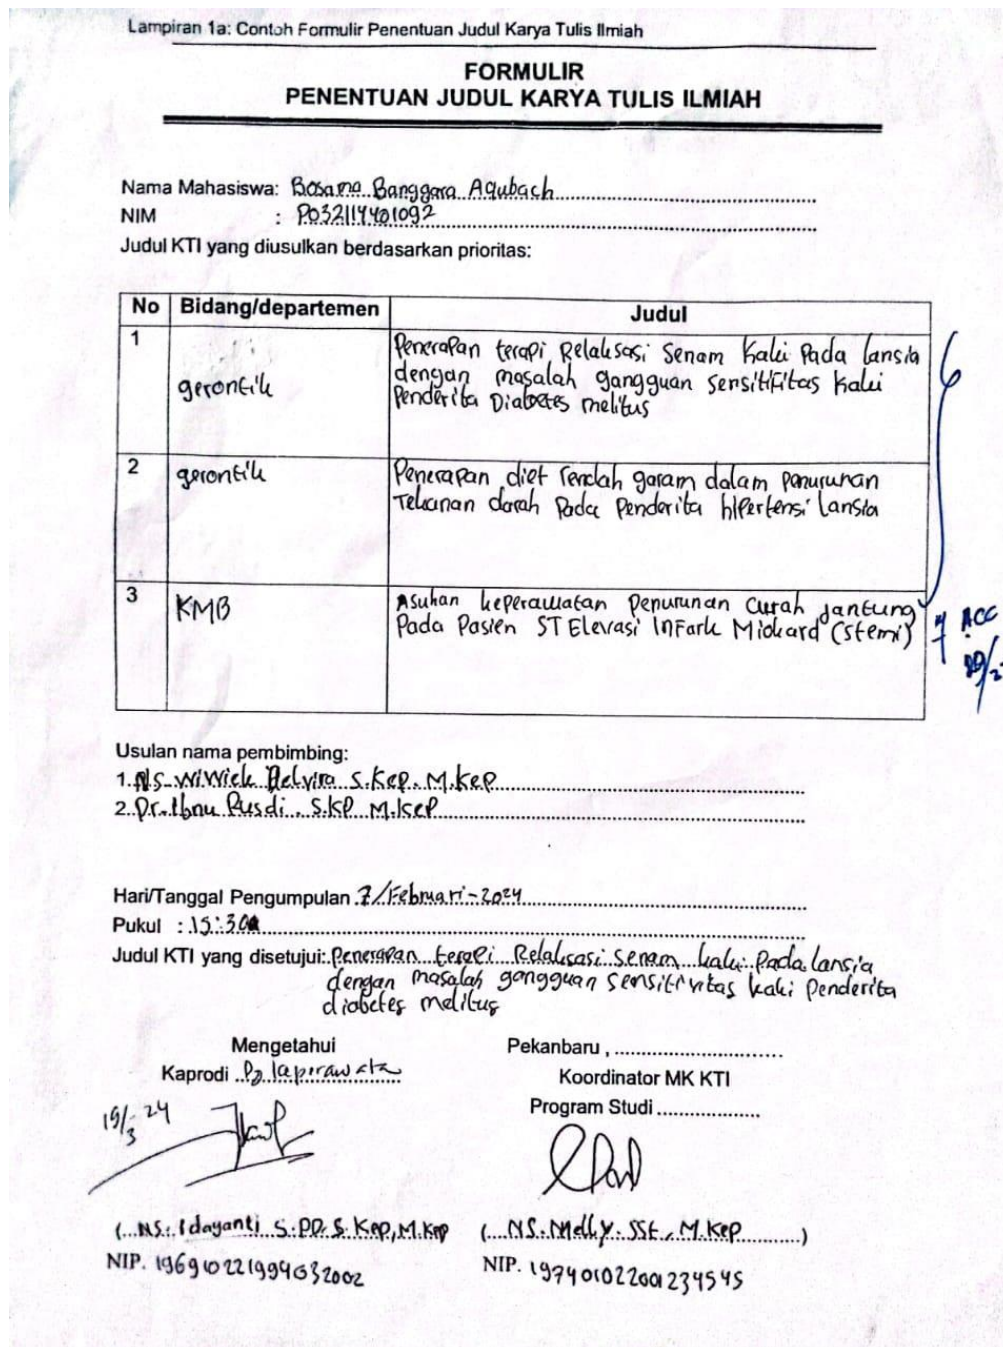 Lampiran 1a: Contoh Formulir Penentuan Judul Karya Tulis Ilmiah
FORMULIR
PENENTUAN JUDUL KARYA TULIS ILMIAH
Nama Mahasiswa: Bosama Banggara Aqubach
NIM : P032114401092
Judul KTI yang diusulkan berdasarkan prioritas:
No Bidang/departemen Judul
1 gerontik Penerapan terapi Relaksasi Senam kaki Pada lansia
dengan masalah gangguan sensitifitas kaki
Penderita Diabetes melitus
2 gerontik Penerapan diet rendah garam dalam penurunan
Tekanan darah Pada Penderita hipertensi Lansia
3 KMB Asuhan keperawatan penurunan curah jantung
Pada Pasien ST Elevasi Infark Miokard (stemi)
ACC
Usulan nama pembimbing:
1. NS. Wiwiek Delvira S.Kep. M.Kep
2. Dr. Ibnu Rusdi, S.KP M.Kep
Hari/Tanggal Pengumpulan 7/Februari-2024
Pukul : 15:30
Judul KTI yang disetujui: Penerapan terapi Relaksasi Senam kaki Pada lansia
dengan masalah gangguan sensitivitas kaki Penderita
diabetes melitus
Mengetahui Pekanbaru ,
Kaprodi Koordinator MK KTI
Program Studi
19/3 24
(NS. Idayanti S.PD. S.Kep, M.Kep (NS. Melly. SST., M.Kep )
NIP. 196910221994032002 NIP. 197401022001234545